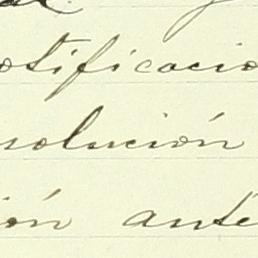 otificacio
solución
ión ante